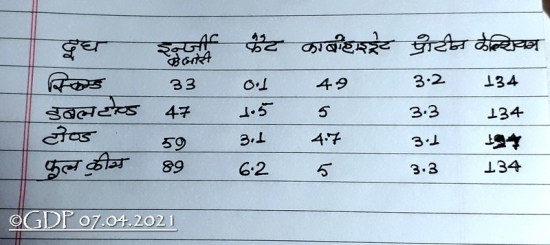 दूध इनर्जी फैट कार्बोहाइड्रेट प्रोटीन कैल्शियम
कैलोरी
स्किम्ड 33 0.1 4.9 3.2 134
डबल टोण्ड 47 1.5 5 3.3 134
टोण्ड 59 3.1 4.7 3.1
फुल क्रीम 89 6.2 5 3.3 134
©GDP 07.04.2021